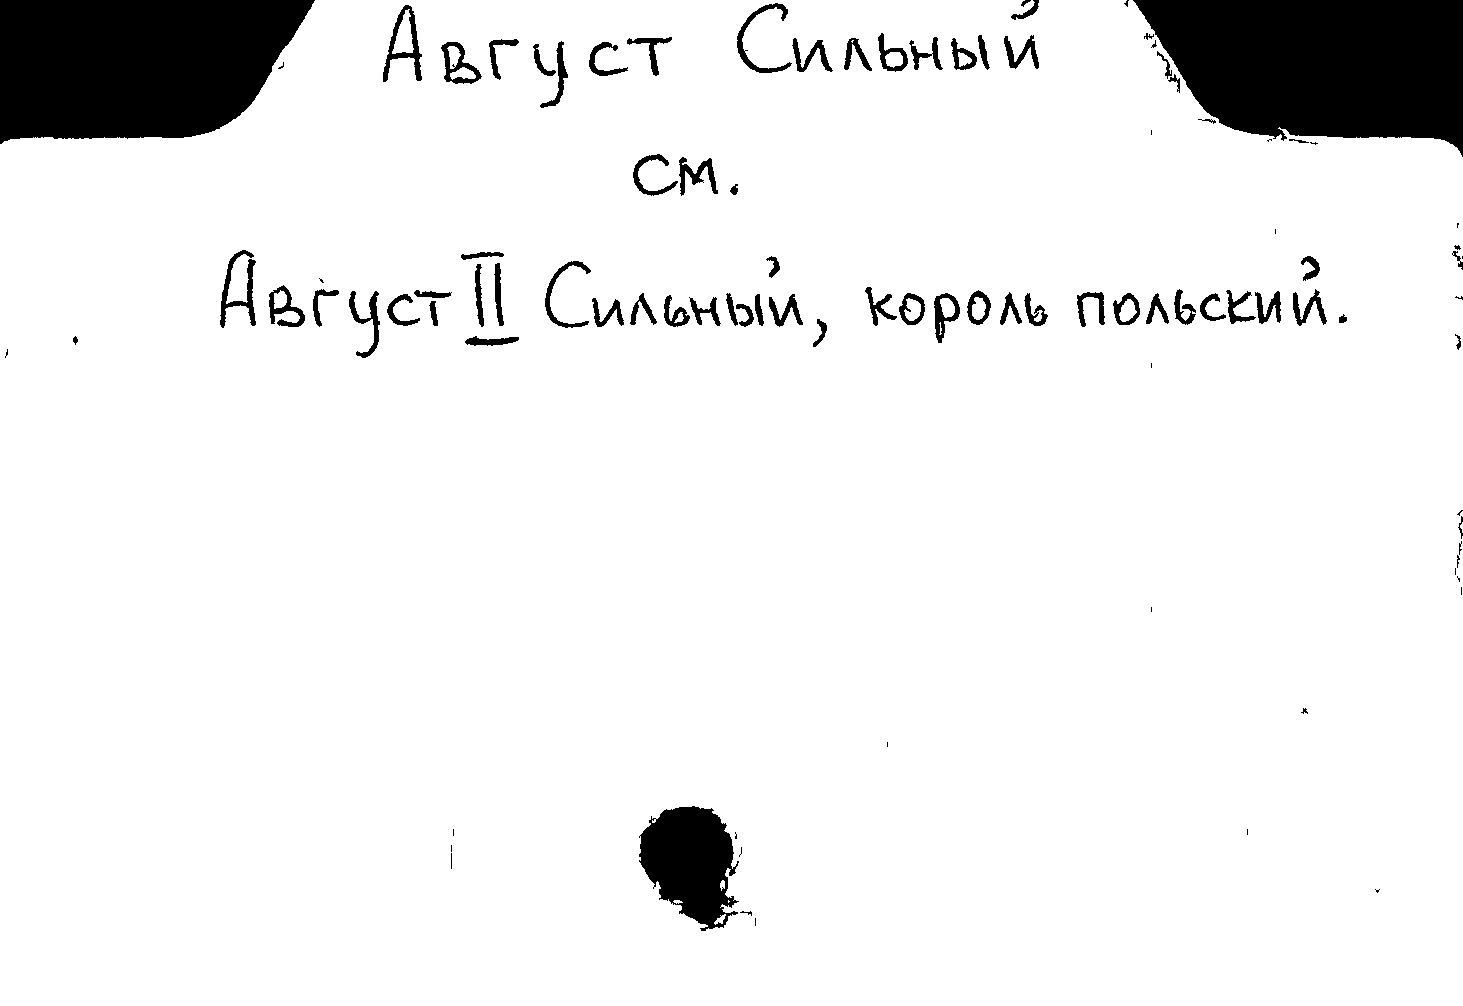 Август Сильный
см.
Август II Сильный, король польский.